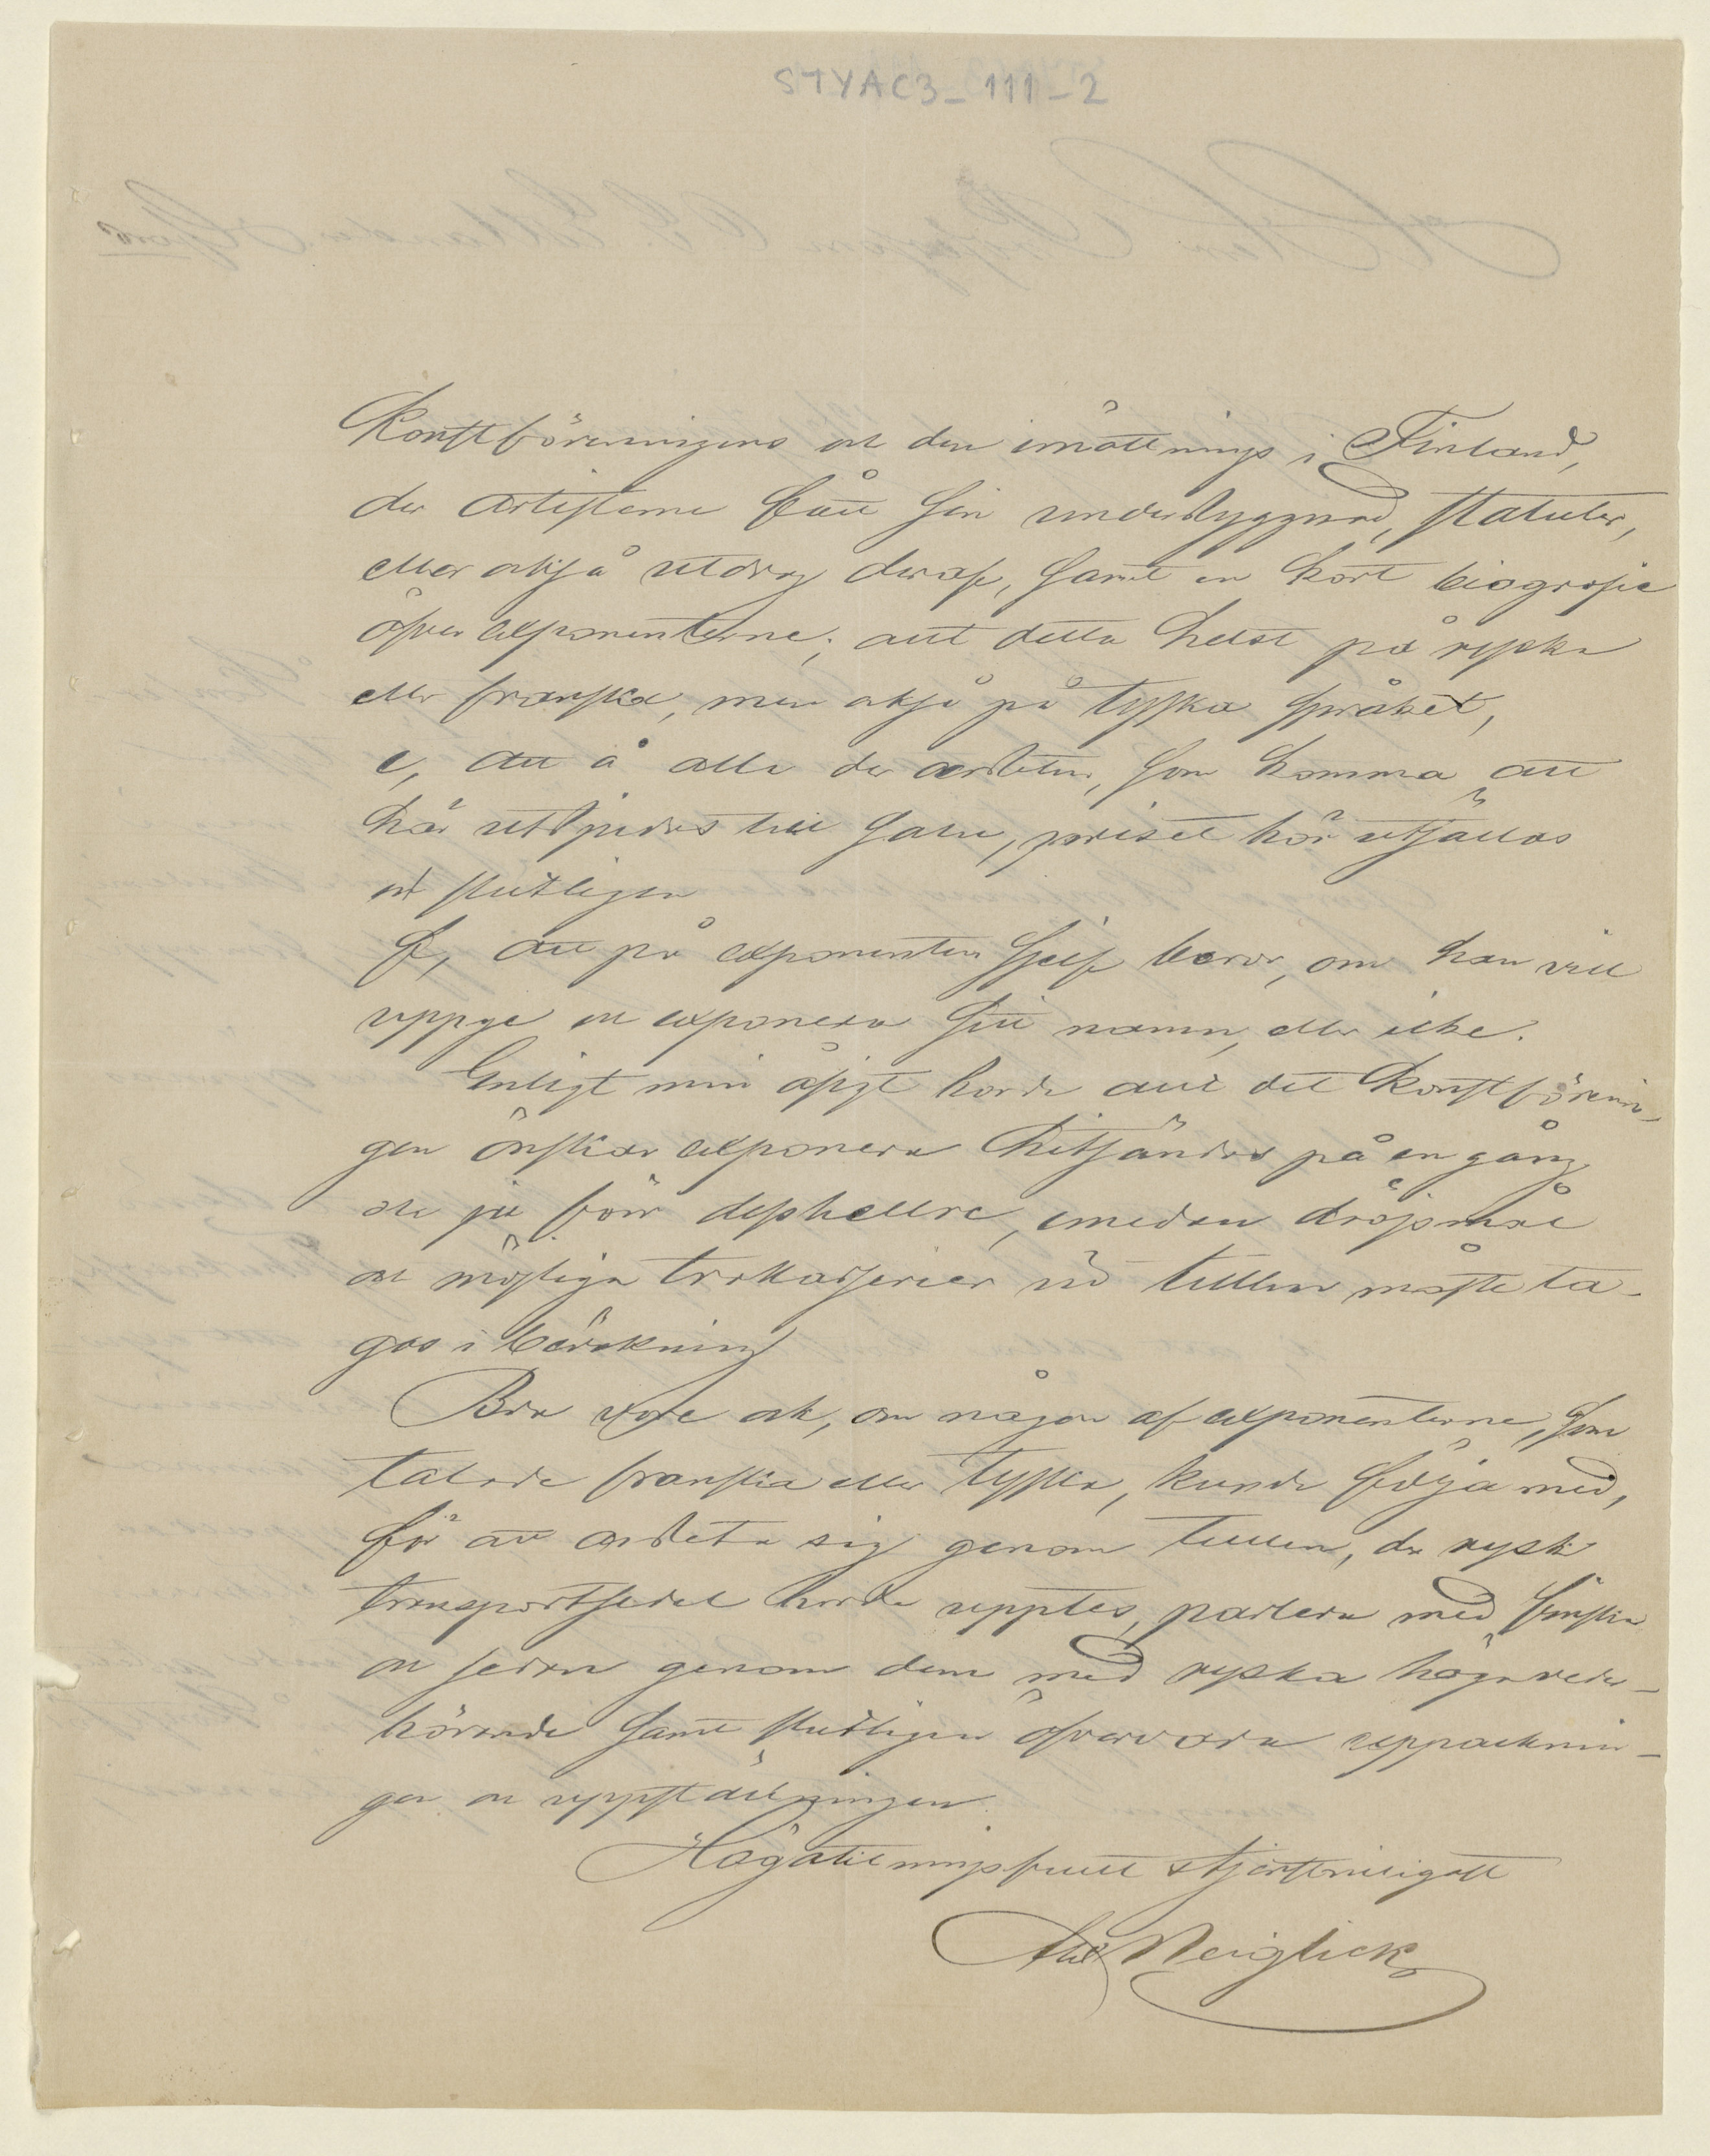 STYAC3_111_2
Konstföreningens och den inrättnings i Finland,
der artisterne fått sin underbyggnad, statuter,
eller också utdrag deraf, samt en kort biografie
öfver exponenterne; allt detta helst på ryska
eller franska, men också på tyska språket,
e, att å alla de arbeten, som komma att
här utbjudas till salu, priset bör utsättas
och slutligen
f, att på exponenten sjelf beror, om han vill
uppge en exponera sitt namn, eller icke.
Enligt min åsigt borde allt det Konstförenin-
gen önskar exponera hitsändas på en gång
och ju förr desto hellre, emedan dröjsmål
och möjliga trakasserier vid tullen måste ta-
gas i beräkning
Bra vore ock, om någon af exponenterne, som
talade franska eller tyska, kunde följa med,
för att arbeta sig genom tullen, der rysk
transportsedel borde upptas, parlera med finska
och sedan genom dem med ryska högveder-
börande samt slutligen öfvervara uppacknin-
gen och uppställningen.
Högaktningsfullt och tjenstvilligast
Alex Neiglick